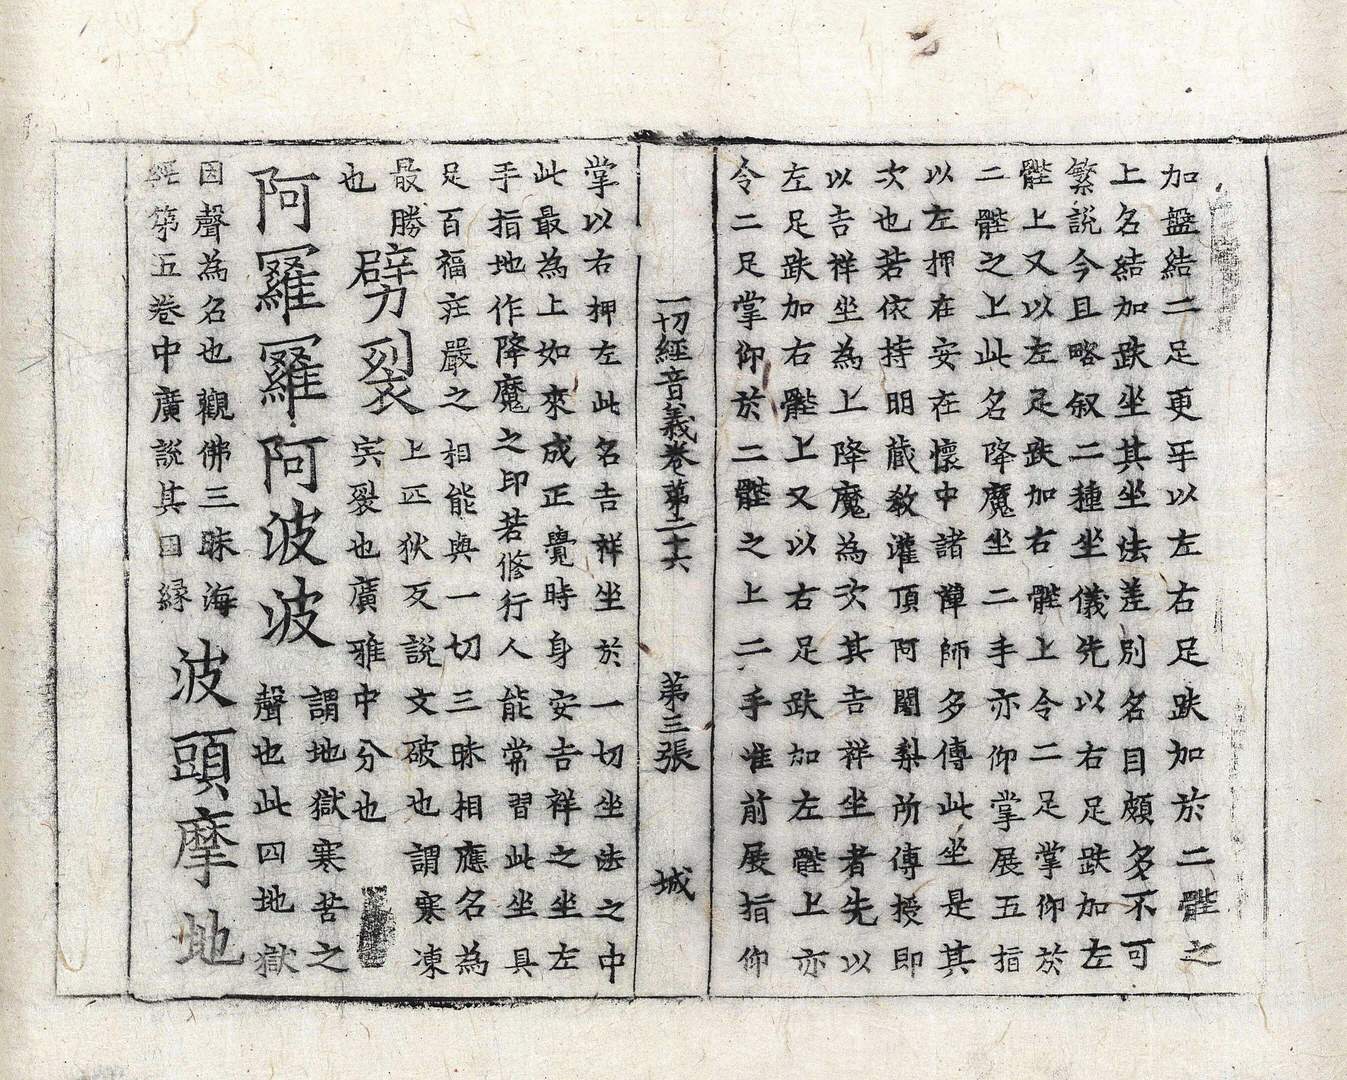 加盤結二足更手以左右足趺加於二䏶之
上名結加趺坐其坐法差別名目頗多不可
繁說今且略叙二種坐儀先以右足趺加左
䏶上又以左足趺加右䏶上令二足掌仰於
二䏶之上此名降魔坐二手亦仰掌展五指
以左押在安在懷中諸禪師多傳此坐是其
次也若依持明藏教灌頂阿闍梨所傳授即
以吉祥坐為上降魔為次其吉祥坐者先以
左足趺加右䏶上又以右足趺加左䏶上亦
令二足掌仰於二䏶之上二手准前展指仰
一切經音義卷第二十六 第三張 城
掌以右押左此名吉祥坐於一切坐法之中
此最為上如來成正覺時身安吉祥之坐左
手指地作降魔之印若修行人能常習此坐具
足百福莊嚴之相能與一切三昧相應名為
最勝
也 劈裂 上匹狄反說文破也謂寒凍
宍裂也廣雅中分也
阿羅羅阿波波 謂地獄寒苦之
聲也此四地獄
因聲為名也觀佛三昧海
經第五卷中廣說其因緣 波頭摩地